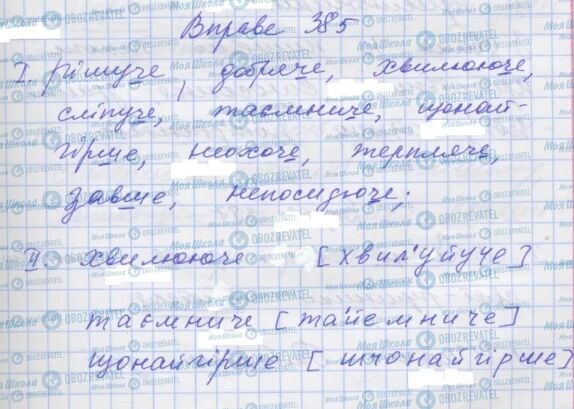 Вправа 385
I. рішуче, добряче, хвилююче,
сліпуче, таємниче, щонай-
гірше, неохоче, терпляче,
завше, непосидюче;
II хвилююче [хвил'уйуче]
таємниче [тайемниче]
щонайгірше [шчонайгірше]